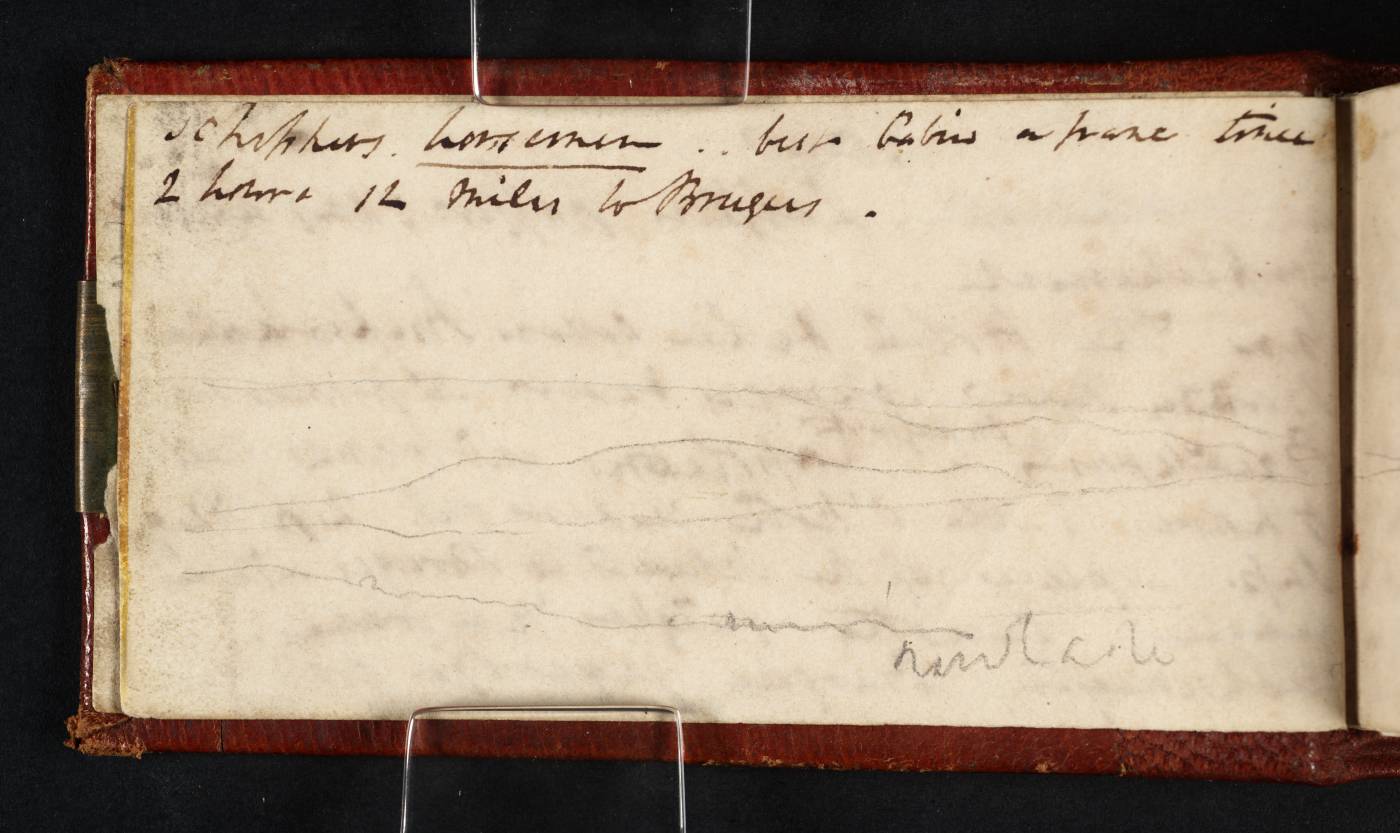 Schippers. horsemen .. best Cabin a franc time
2 hours 12 Miles to Bruges .